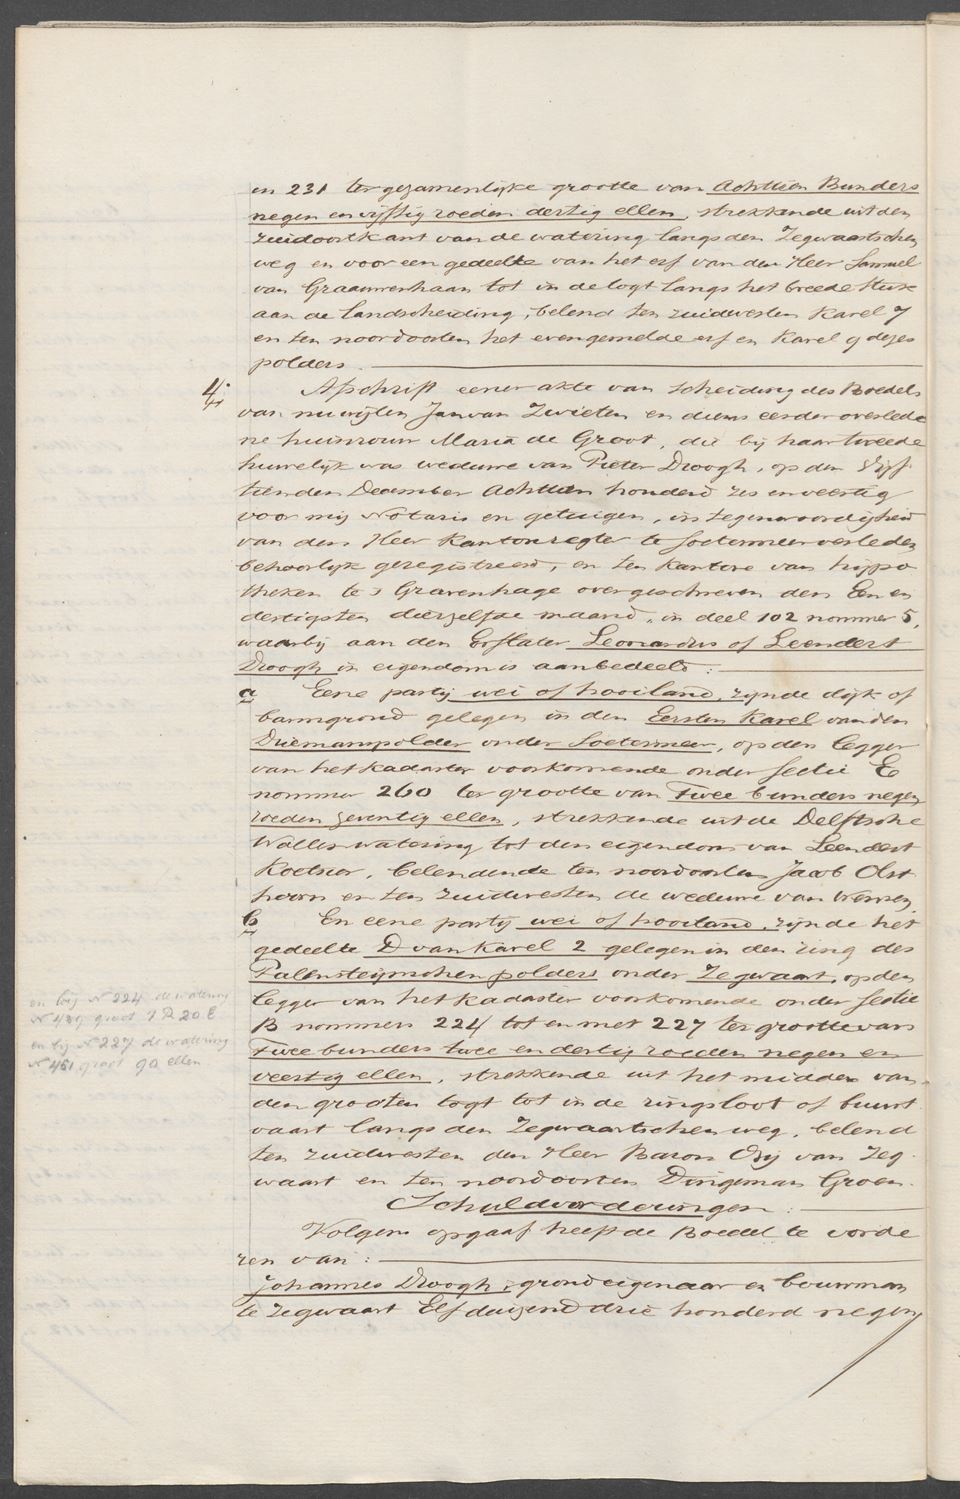 en 231 ter gezamenlijke grootte van Achttien Bunders
negen en vijftig roeden dertig ellen, strekkende uit den
zuidoostkant van de watering langs den Zegwaartschen
weg en voor een gedeelte van het erf van den Heer Samuel
van Graauwenhaan tot in de togt langs het breede stuk
aan de landscheiding, belend ten zuidwesten Karel 7
en ten noordoosten het evengemelde erf en Karel 9 dezes
polders.
4; Afschrift eener akte van scheiding des Boedels
van nu wijlen Jan van Zwieten en diens eerder overlede
ne huisvrouw Maria de Groot, die bij haar tweede
huwelijk was weduwe van Pieter Droogh, op den Vijf
tienden December Achttien honderd zes en veertig
voor mij Notaris en getuigen, in tegenwoordigheid
van den Heer Kantonregter te Soetermeer verleden
behoorlijk geregistreerd, en ten kantore van hijpo
theken te s Gravenhage overgeschreven den Een en
dertigsten dierzelfde maand, in deel 102 nommer 5,
waarbij aan den Erflater Leonardus of Leendert
Droogh in eigendom is aanbedeeld:
a Eene partij wei of hooiland, zijnde dijk of
banngrond gelegen in den Eersten Karel van den
Driemanspolder onder Soetermeer, op den legger
van het kadaster voorkomende onder Sectie E
nommer 260 ter grootte van Twee bunders negen
roeden zeventig ellen, strekkende uit de Delftsche
Wallewatering tot den eigendom van Leendert
Koetser, belendende ten noordoosten Jacob Olst
hoorn en ten zuidwesten de weduwe van
b En eene partij wei of hooiland, zijnde het
gedeelte D van Karel 2 gelegen in den ring des
Palensteijnschen polders onder Zegwaart, op den
legger van het kadaster voorkomende onder Sectie
B nommers 224 tot en met 227 ter grootte van
Twee bunders twee en dertig roeden negen en
veertig ellen, strekkende uit het midden van
den grooten togt tot in de ringsloot of buurt
vaart langs den Zegwaartschen weg, belend
ten zuidwesten den Heer Baron Osij van Zeg
waart en ten noordoosten Dingeman Groen.
en bij No 224 de watering
No 449 groot 1 R 20 E
en bij No 227 de watering
No 451 groot 90 ellen
Schuldvorderingen:
Volgens opgaaf heeft de Boedel te vorde
ren van:
Johannes Droogh, grondeigenaar en bouwman
te Zegwaart Elf duizend drie honderd negen